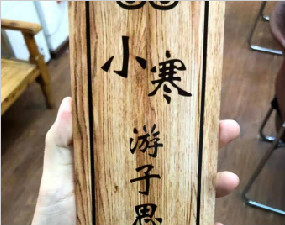 小寒
游子思